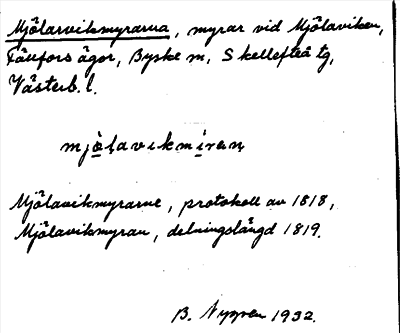 Mjölarvikmyrarna, myrar vid Mjölaviken,
Fällfors ägor, Byske sn, Skellefteå tg,
Västerb. l.
mjölavikmiran
Mjölavikmyrarne, protokoll av 1818,
Mjölavikmyran, delningslängd 1819.
B. Nyman 1932.